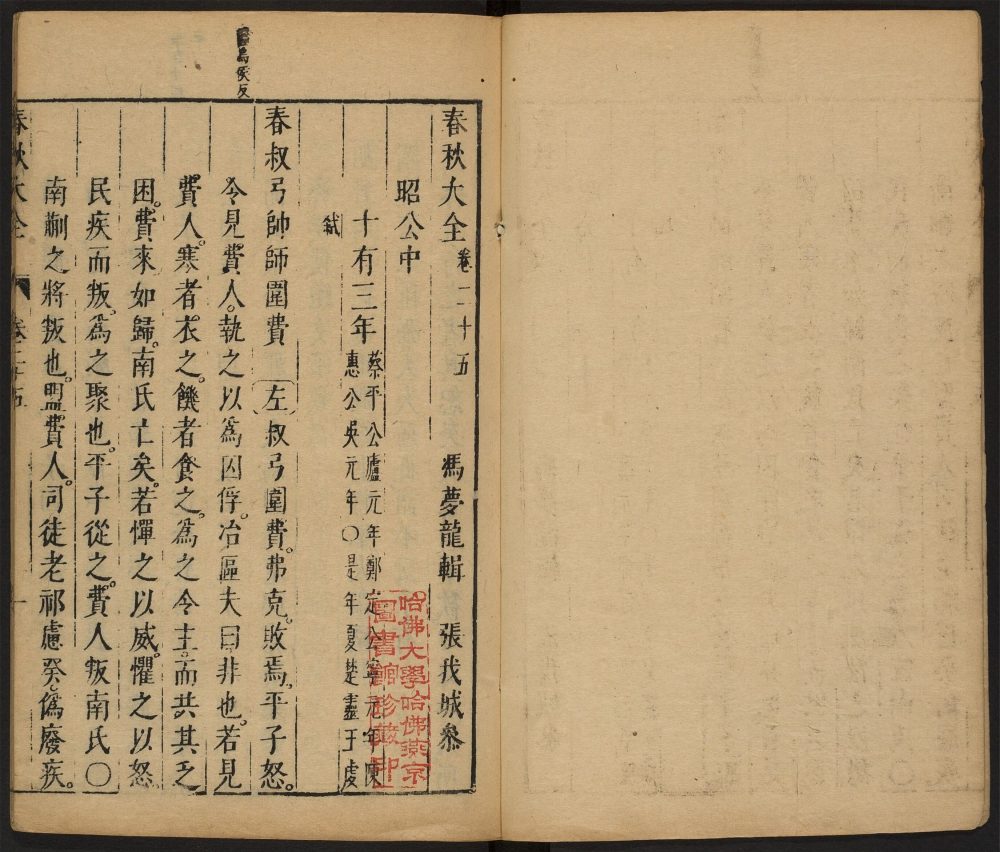 春秋大全 卷二十五 馮夢龍輯 張我城參
昭公中
十有三年 蔡平公廬元年鄭定公寧元年陳
惠公吳元年○是年夏楚靈王虔
弒
春叔弓帥師圍費 左叔弓圍費。弗克。敗焉。平子怒。
令見費人。執之以為囚俘。冶區夫曰。非也。若見
費人。寒者衣之。饑者食之。為之令主。而共其乏
困。費來如歸。南氏亡矣。若憚之以威。懼之以怒。
民疾而叛。為之聚也。平子從之。費人叛南氏○
南蒯之將叛也。盟費人。司徒老祁慮癸。偽廢疾。
春秋大全 卷二十五 一
烏侯反
哈佛大學哈佛燕京
圖書館珍藏印